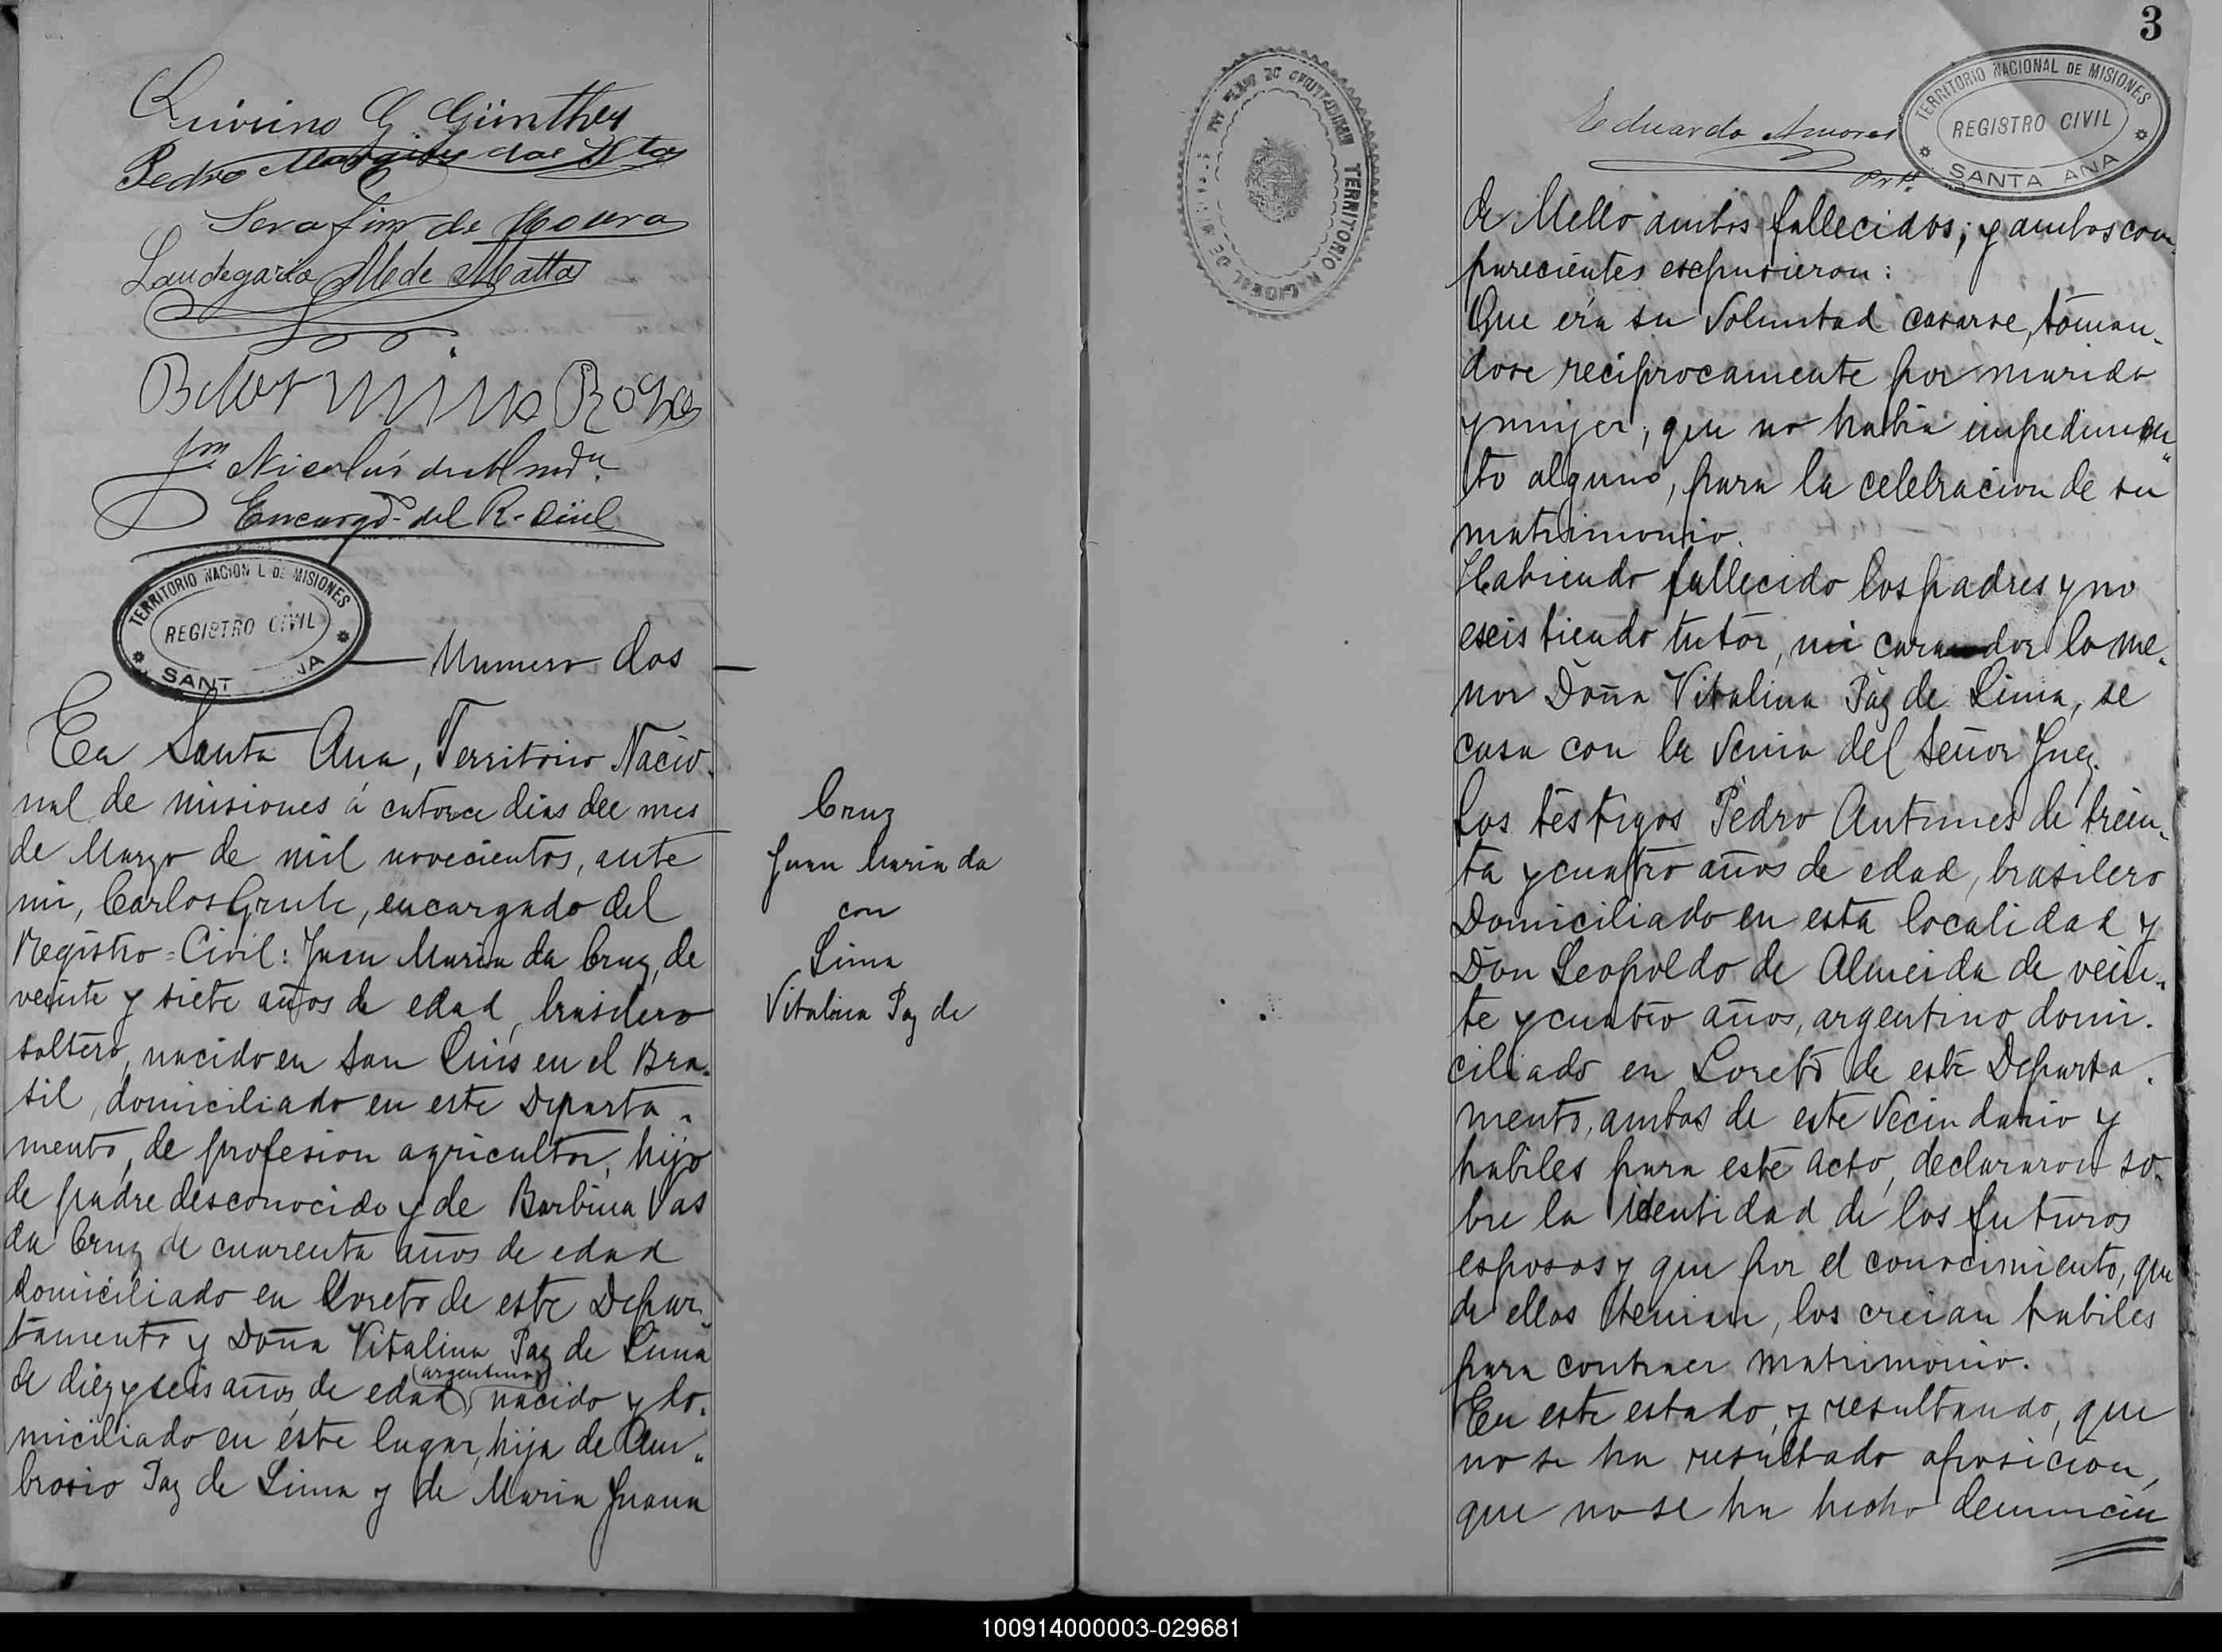 Quirino G. Günther
Pedro
Serafim de Moura
Laudegario M de Mattos
Rosa
Nicolás
Encargdo del R. Civil
TERRITORIO NACION L DE MISIONES
REGISTRO CIVIL
SANT NA
Numero dos
En Santa Ana, Territorio Nacio-
nal de misiones á catorce dias del mes
de Marzo de mil novecientos, ante
mi, Carlos Grute, encargado del
Registro=Civil: Juan Maria da Cruz, de
veinte y siete años de edad, brasilero
soltero, nacido en San Luis en el Bra-
sil, domiciliado en este Departa-
mento, de profesion agricultor, hijo
de padre desconocido y de Barbina Vas
da Cruz de cuarenta años de edad
domiciliado en Loreto de este Depar-
tamento y Doña Vitalina Paz de Lima
(argentina)
de diez y seis años de edad, nacido y do-
miciliado en este lugar, hija de Am-
brosio Paz de Lima y de Maria Juana
Cruz
Juan Maria da
con
Lima
Vitalina Paz de
3
TERRITORIO NACIONAL DE MISIONES
REGISTRO CIVIL
SANTA ANA
Eduardo
de Mello ambos fallecidos; y ambos com-
parecientes expusieron:
Que era su Voluntad casarse, toman-
dose reciprocamente por marido
y mujer, que no habia impedimen-
to alguno, para la celebracion de su
matrimonio.
Habiendo fallecido los padres y no
existiendo tutor, ni curador la me-
nor Doña Vitalina Paz de Lima, se
casa con la Venia del Señor Juez.
Los testigos Pedro Antunes de trein-
ta y cuatro años de edad, brasilero
Domiciliado en esta localidad y
Don Leopoldo de Almeida de vein-
te y cuatro años, argentino domi-
ciliado en Loreto de este Departa-
mento, ambos de este Vecindario y
habiles para este acto, declararon so-
bre la identidad de los futuros
esposos y que por el conocimiento, que
de ellos tenian, los creian habiles
para contraer matrimonio.
En este estado, y resultando, que
no se ha resultado oposicion,
que no se ha hecho denuncia
100914000003-029681